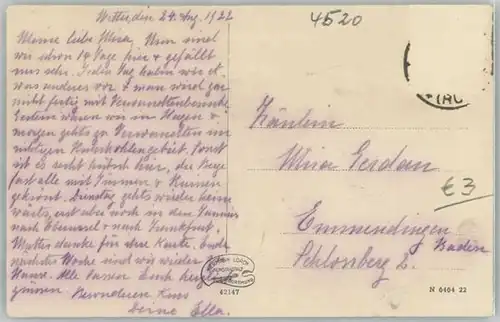 4520
Wetter, den 24. Aug. 1922
Meine liebe Mina. Nun sind
wir schon 14 Tage hier & gefällt
uns sehr. Jeden Tag haben wir et-
was anderes vor & man wird gar
nicht fertig mit Verwandtenbesuche
Gestern waren wir in Hagen &
morgen gehts zu Verwandten im
richtigen Kohlengebiet. Sonst
ist es recht hübsch hier, die Berge
fast alle mit Türmen & Ruinen
gekrönt. Dienstag gehts wieder heim-
wärts, erst aber noch in den Taunus
nach & nach Frankfurt.
Mutter dankt für ihre Karte. Ende
nächster Woche sind wir wieder
Alle lassen Euch herzlich
grüssen. Besonderen Kuss
Deine Ella.
Fräulein
Mina
Emmendingen
Baden
Schlossberg 2.
€3
42147
N 6464 22